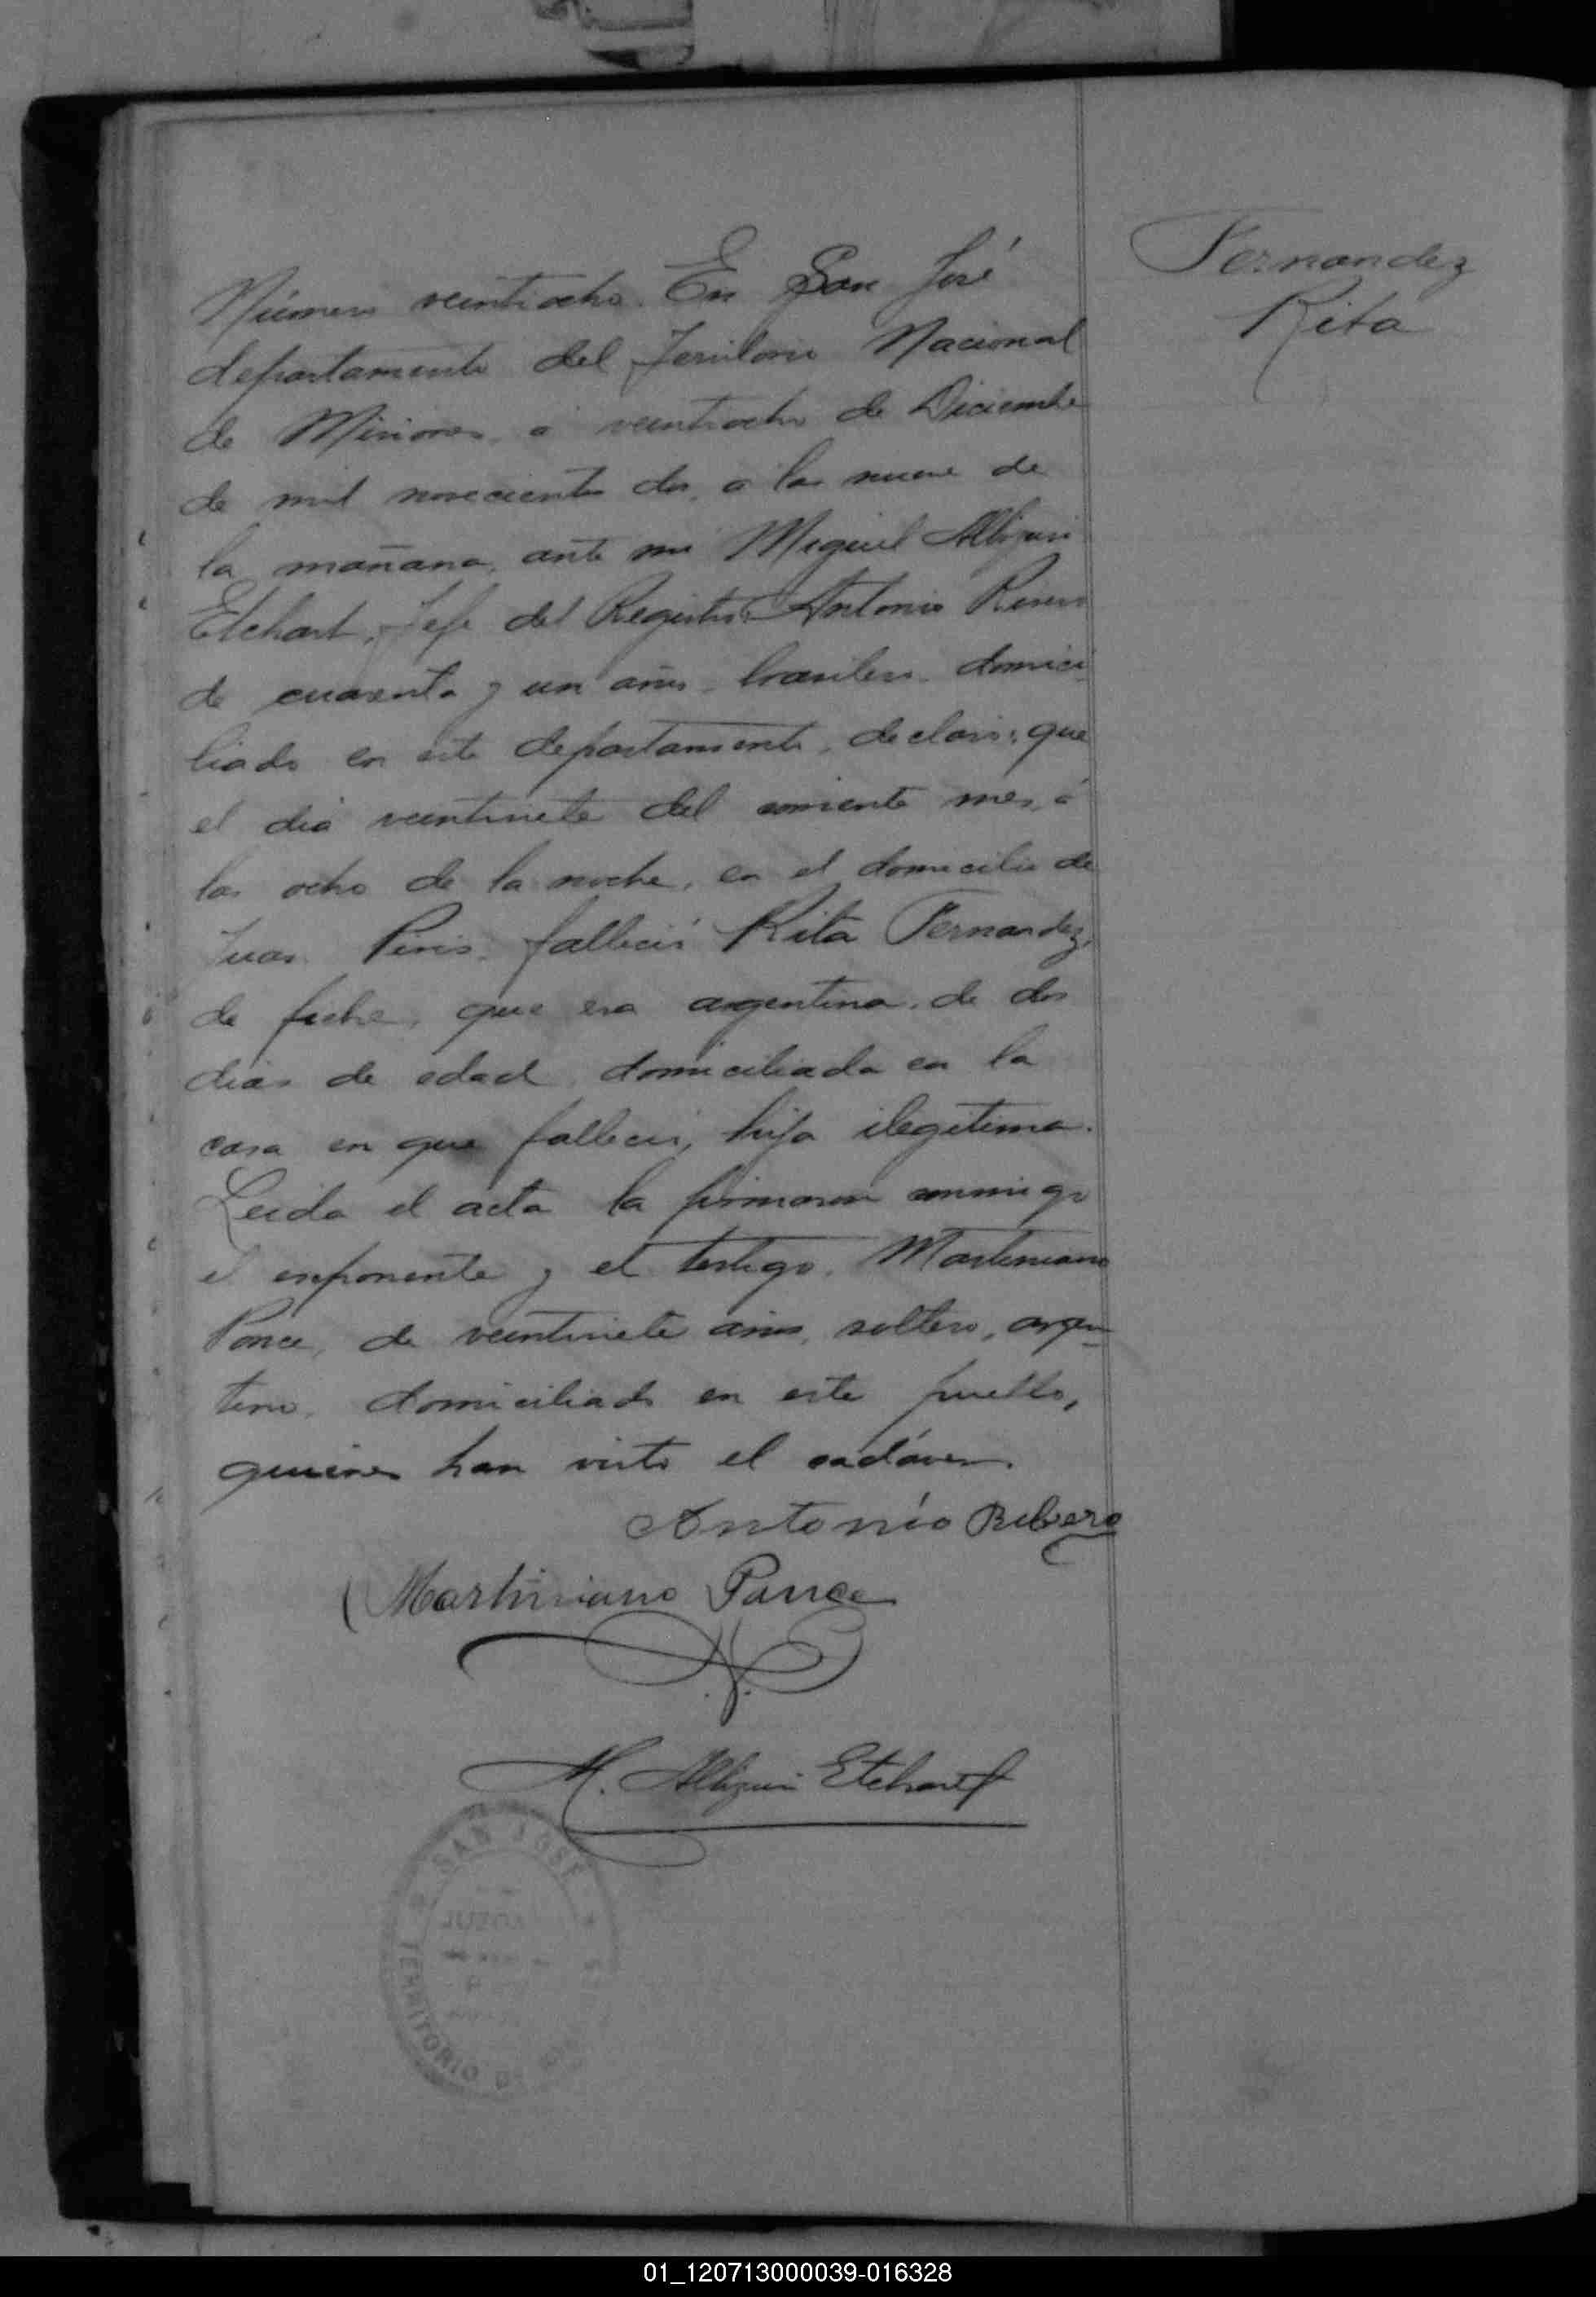 Fernandez
Rita
Número veintiocho. En San José
departamento del Territorio Nacional
de Misiones, a veintiocho de Diciembre
de mil novecientos dos, a las nueve de
la mañana, ante mi Miguel Albizuri
Etchart, Jefe del Registro, Antonio
de cuarenta y un años, brasilero, domici
liado en este departamento, declaró: que
el dia veintisiete del corriente mes, á
las ocho de la noche, en el domicilio de
Juan falleció Rita Fernandez,
de fiebre, que era argentina, de dos
dias de edad, domiciliada en la
casa en que falleció, hija ilegitima.
Leida el acta la firmaron conmigo
el exponente y el testigo, Martiniano
Ponce, de veintisiete años, soltero, argen
tino, domiciliado en este pueblo,
quienes han visto el cadáver.
Antonio Ribero
Martiniano Ponce
M. Albizuri Etchart
SAN JOSÉ
JUZGA
TERRITORIO DE
01_120713000039-016328